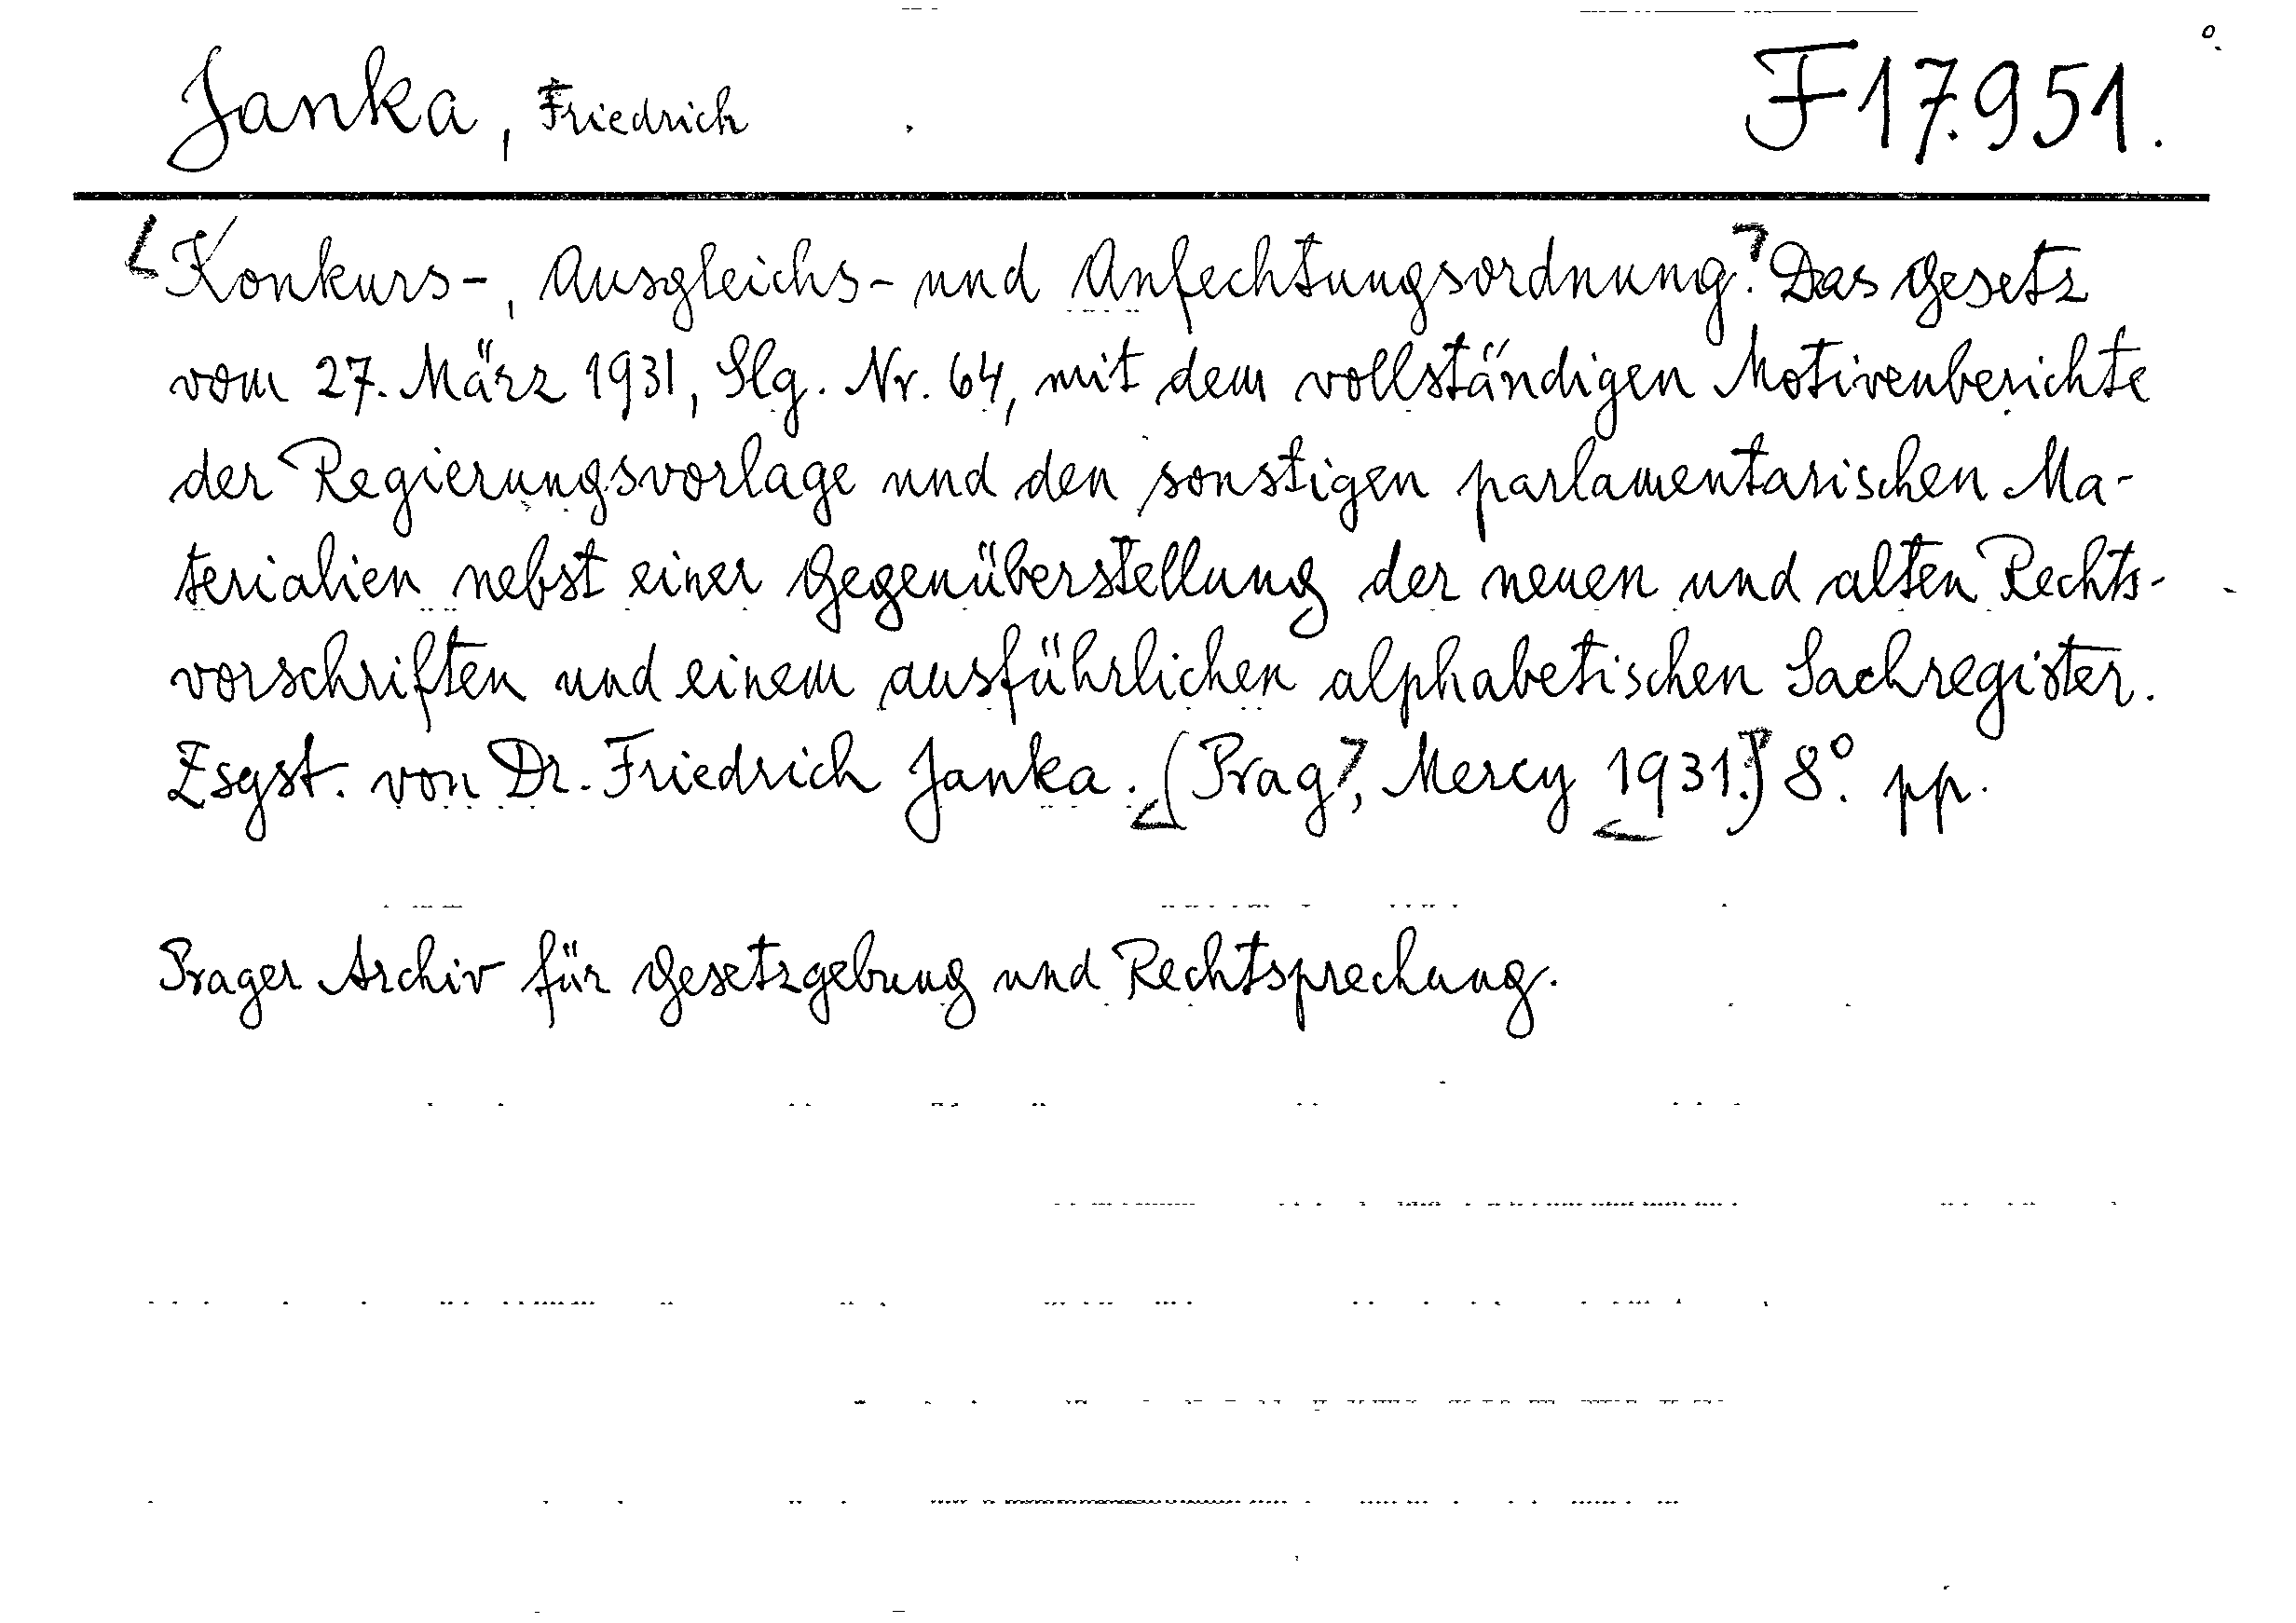 Janka, Friedrich F 17.951.
Konkurs-, Ausgleichs- und Anfechtungsordnung. Das Gesetz
vom 27. März 1931, Slg. Nr. 64, mit dem vollständigen Motivenberichte
der Regierungsvorlage und den sonstigen parlamentarischen Ma-
terialien nebst einer Gegenüberstellung der neuen und alten Rechts-
vorschriften und einem ausführlichen alphabetischen Sachregister.
Zsgst. von Dr. Friedrich Janka. (Prag, Mercy 1931.) 8°. pp.
Prager Archiv für Gesetzgebung und Rechtsprechung.